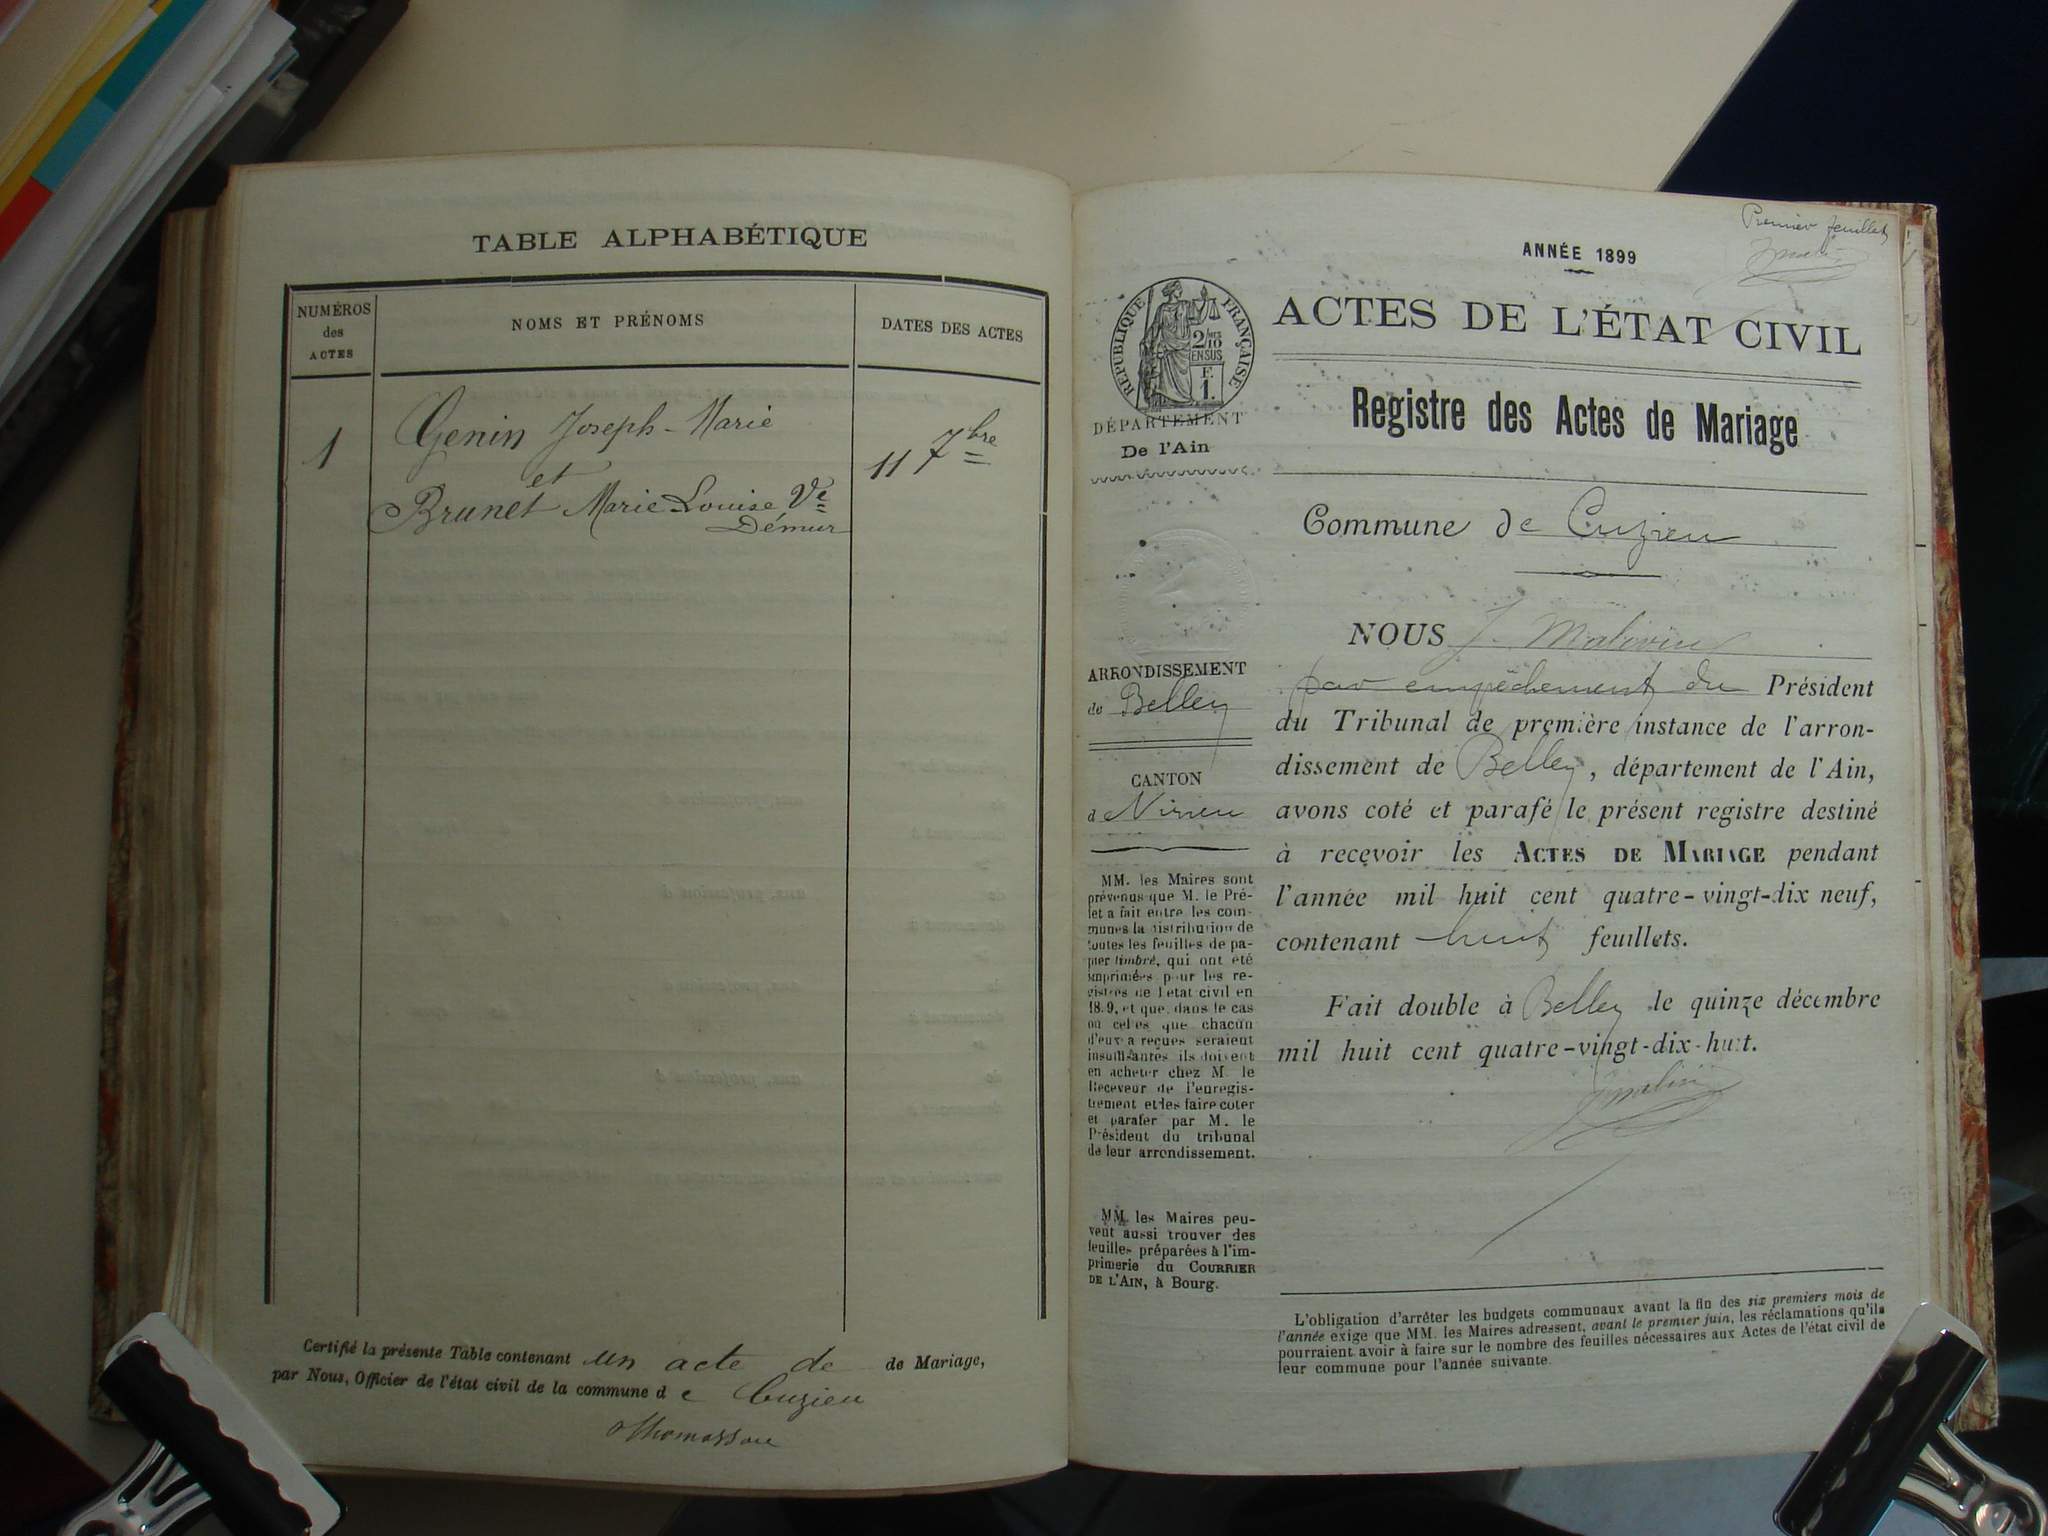 TABLE ALPHABÉTIQUE
NUMÉROS
des
ACTES
NOMS ET PRÉNOMS
DATES DES ACTES
1
Genin Joseph-Marie
et
Brunet Marie Louise Ve
Démur
11 7bre
Certifié la présente Table contenant un acte de de Mariage,
par Nous, Officier de l'état civil de la commune d e Cuzieu
Thomasson
Premier feuillet
ANNÉE 1899
RÉPUBLIQUE FRANÇAISE
2/10
EN SUS
F.
1.
DÉPARTEMENT
De l'Ain
ACTES DE L'ÉTAT CIVIL
Registre des Actes de Mariage
Commune de Cuzieu
ARRONDISSEMENT
de Belley
CANTON
de Virieu
MM. les Maires sont
prévenus que M. le Pré-
fet a fait entre les com-
munes la distribution de
toutes les feuilles de pa-
pier timbré, qui ont été
imprimées pour les re-
gistres de l'état civil en
1899, et que, dans le cas
où celles que chacun
d'eux a reçues seraient
insuffisantes ils doivent
en acheter chez M. le
Receveur de l'enregis-
trement et les faire coter
et parafer par M. le
Président du tribunal
de leur arrondissement.
MM. les Maires peu-
vent aussi trouver des
feuilles préparées à l'im-
primerie du COURRIER
DE L'AIN, à Bourg.
NOUS J.
par empêchement du Président
du Tribunal de première instance de l'arron-
dissement de Belley, département de l'Ain,
avons coté et parafé le présent registre destiné
à recevoir les ACTES DE MARIAGE pendant
l'année mil huit cent quatre-vingt-dix neuf,
contenant huit feuillets.
Fait double à Belley le quinze décembre
mil huit cent quatre-vingt-dix-huit.
L'obligation d'arrêter les budgets communaux avant la fin des six premiers mois de
l'année exige que MM. les Maires adressent, avant le premier juin, les réclamations qu'ils
pourraient avoir à faire sur le nombre des feuilles nécessaires aux Actes de l'état civil de
leur commune pour l'année suivante.